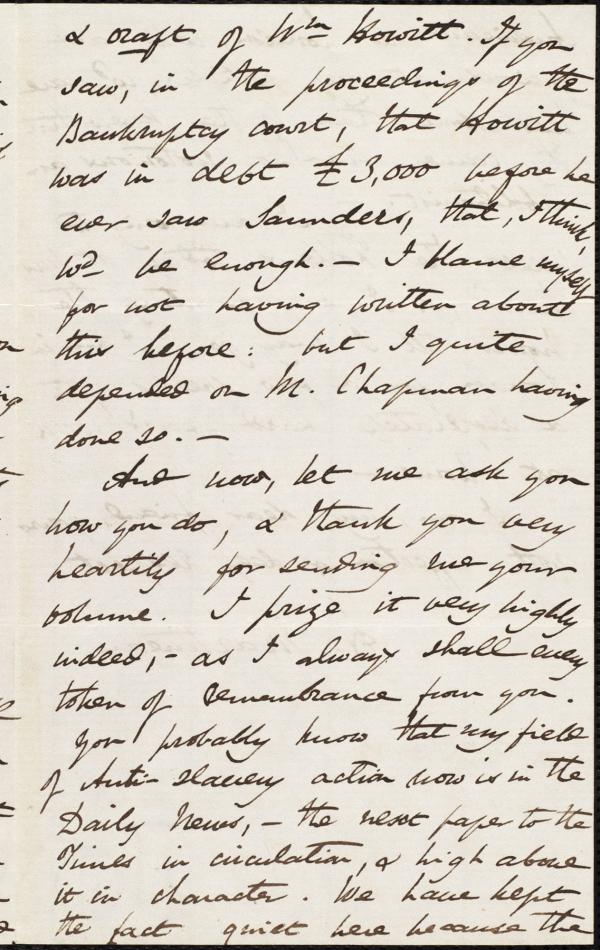 & craft of Wm Howitt. If you
saw, in the proceedings of the
Bankruptcy court, that Howitt
was in debt £3,000 before he
ever saw Saunders, that, I think,
wd be enough. — I blame myself
for not having written about
this before: but I quite
depended on M. Chapman having
done so. —
And now, let me ask you
how you do, & thank you very
heartily for sending me your
volume. I prize it very highly
indeed, - as I always shall every
token of remembrance from you.
You probably know that my field
of Anti-slavery action now is in the
Daily News, — the next paper to the
Times in circulation, & high above
it in character. We have kept
the fact quiet here because the